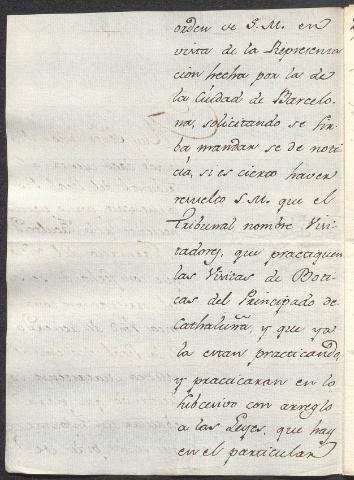 orden de S. M. en
vista de la Representa
cion hecha por la de
la Ciudad de Barcelo-
na, solicitando se sir-
ba mandar se de noti-
cia, si es cierto haver
resuelto S. M. que el
Tribunal nombre Visi-
tadores, que practiquen
las Visitas de Boti-
cas del Principado de
Cathaluña, y que ya
la estan practicando,
y practicaran en lo
subcesivo con arreglo
a las Leyes, que hay
en el particular